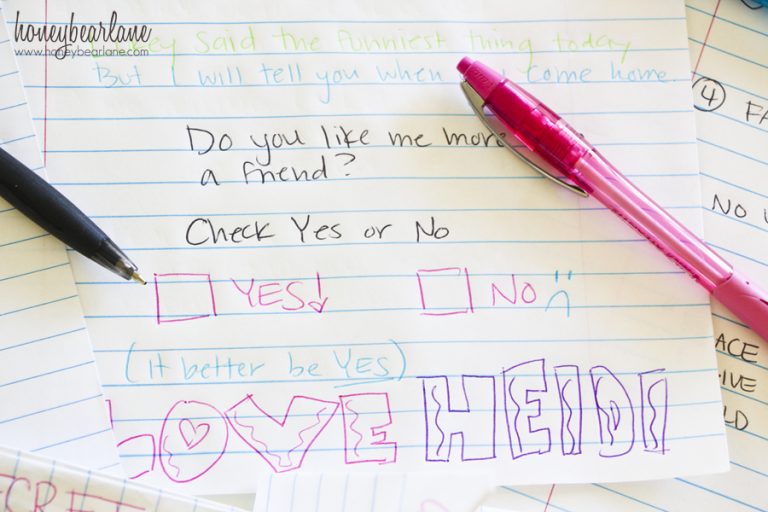 honeybearlane
www.honeybearlane.com
said the funniest thing today
But I will tell you when come home.
Do you like me more
a friend?
Check Yes or No
YES! NO
(it better be YES)
LOVE HEIDI
4
NO